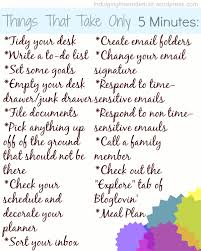 indulgingtheendentist.wordpress.com
Things That Take Only 5 Minutes:
*Tidy your desk
*Write a to-do list
*Set some goals
*Empty your desk
drawer/junk drawer
*File documents
*Pick anything up
off of the ground
that should not be
there
*Check your
schedule and
decorate your
planner
*Sort your inbox
*Create email folders
*Change your email
signature
*Respond to time-
sensitive emails
*Respond to non-
time-sensitive
emails
*Call a family
member
*Check out the
"Explore" tab of
Bloglovin'
*Meal Plan